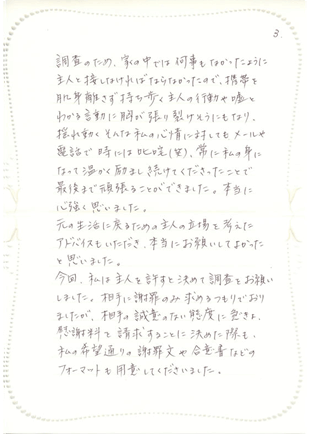 3
調査のため、家の中では何事もなかったように
主人と接しなければならなかったので、携帯を
肌身離さず持ち歩く主人の行動や嘘と
わかる言動に胸が張り裂けそうにもなり、
揺れ動くそんな私の心情に対してもメールや
電話で時には叱咤(笑)、常に私の身に
なって温かく励まし続けてくださったことで
最後まで頑張ることができました。本当に
心強く思いました。
元の生活に戻るための主人の立場を考えた
アドバイスもいただき、本当にお願いしてよかった
と思いました。
今回、私は主人を許すと決めて調査をお願い
しました。相手に謝罪のみ求めるつもりでおり
ましたが、相手の誠意のない態度に
慰謝料を請求することに決めた際も、
私の希望通りの謝罪文や合意書などの
フォーマットも用意してくださいました。